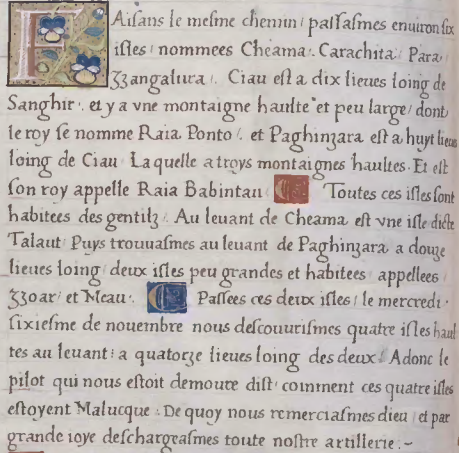 Faisans le mesme chemin / passasmes enuiron six
isles / nommees Cheama. Carachita / Para /
Zzangalura /. Ciau est a dix lieues loing de
Sanghir. et y a vne montaigne haulte et peu large / dont
le roy se nomme Raia Ponto /. et Paghinzara est a huyt lieues
loing de Ciau / Laquelle a troys montaignes haultes. Et est
son roy appelle Raia Babintau Toutes ces isles sont
habitees des gentilz. Au leuant de Cheama est vne isle dicte
Talaut / Puys trouuasmes au leuant de Paghinzara a douze
lieues loing / deux isles peu grandes et habitees / appellees /
Zzoar / et Meau. Passees ces deux isles / le mercredi .
sixiesme de nouembre nous descouurismes quatre isles haul
tes au leuant / a quatorze lieues loing des deux / Adonc le
pilot qui nous estoit demoure dist / comment ces quatre isles
estoyent Malucque . De quoy nous remerciasmes dieu / et par
grande ioye deschargeasmes toute nostre artillerie .~